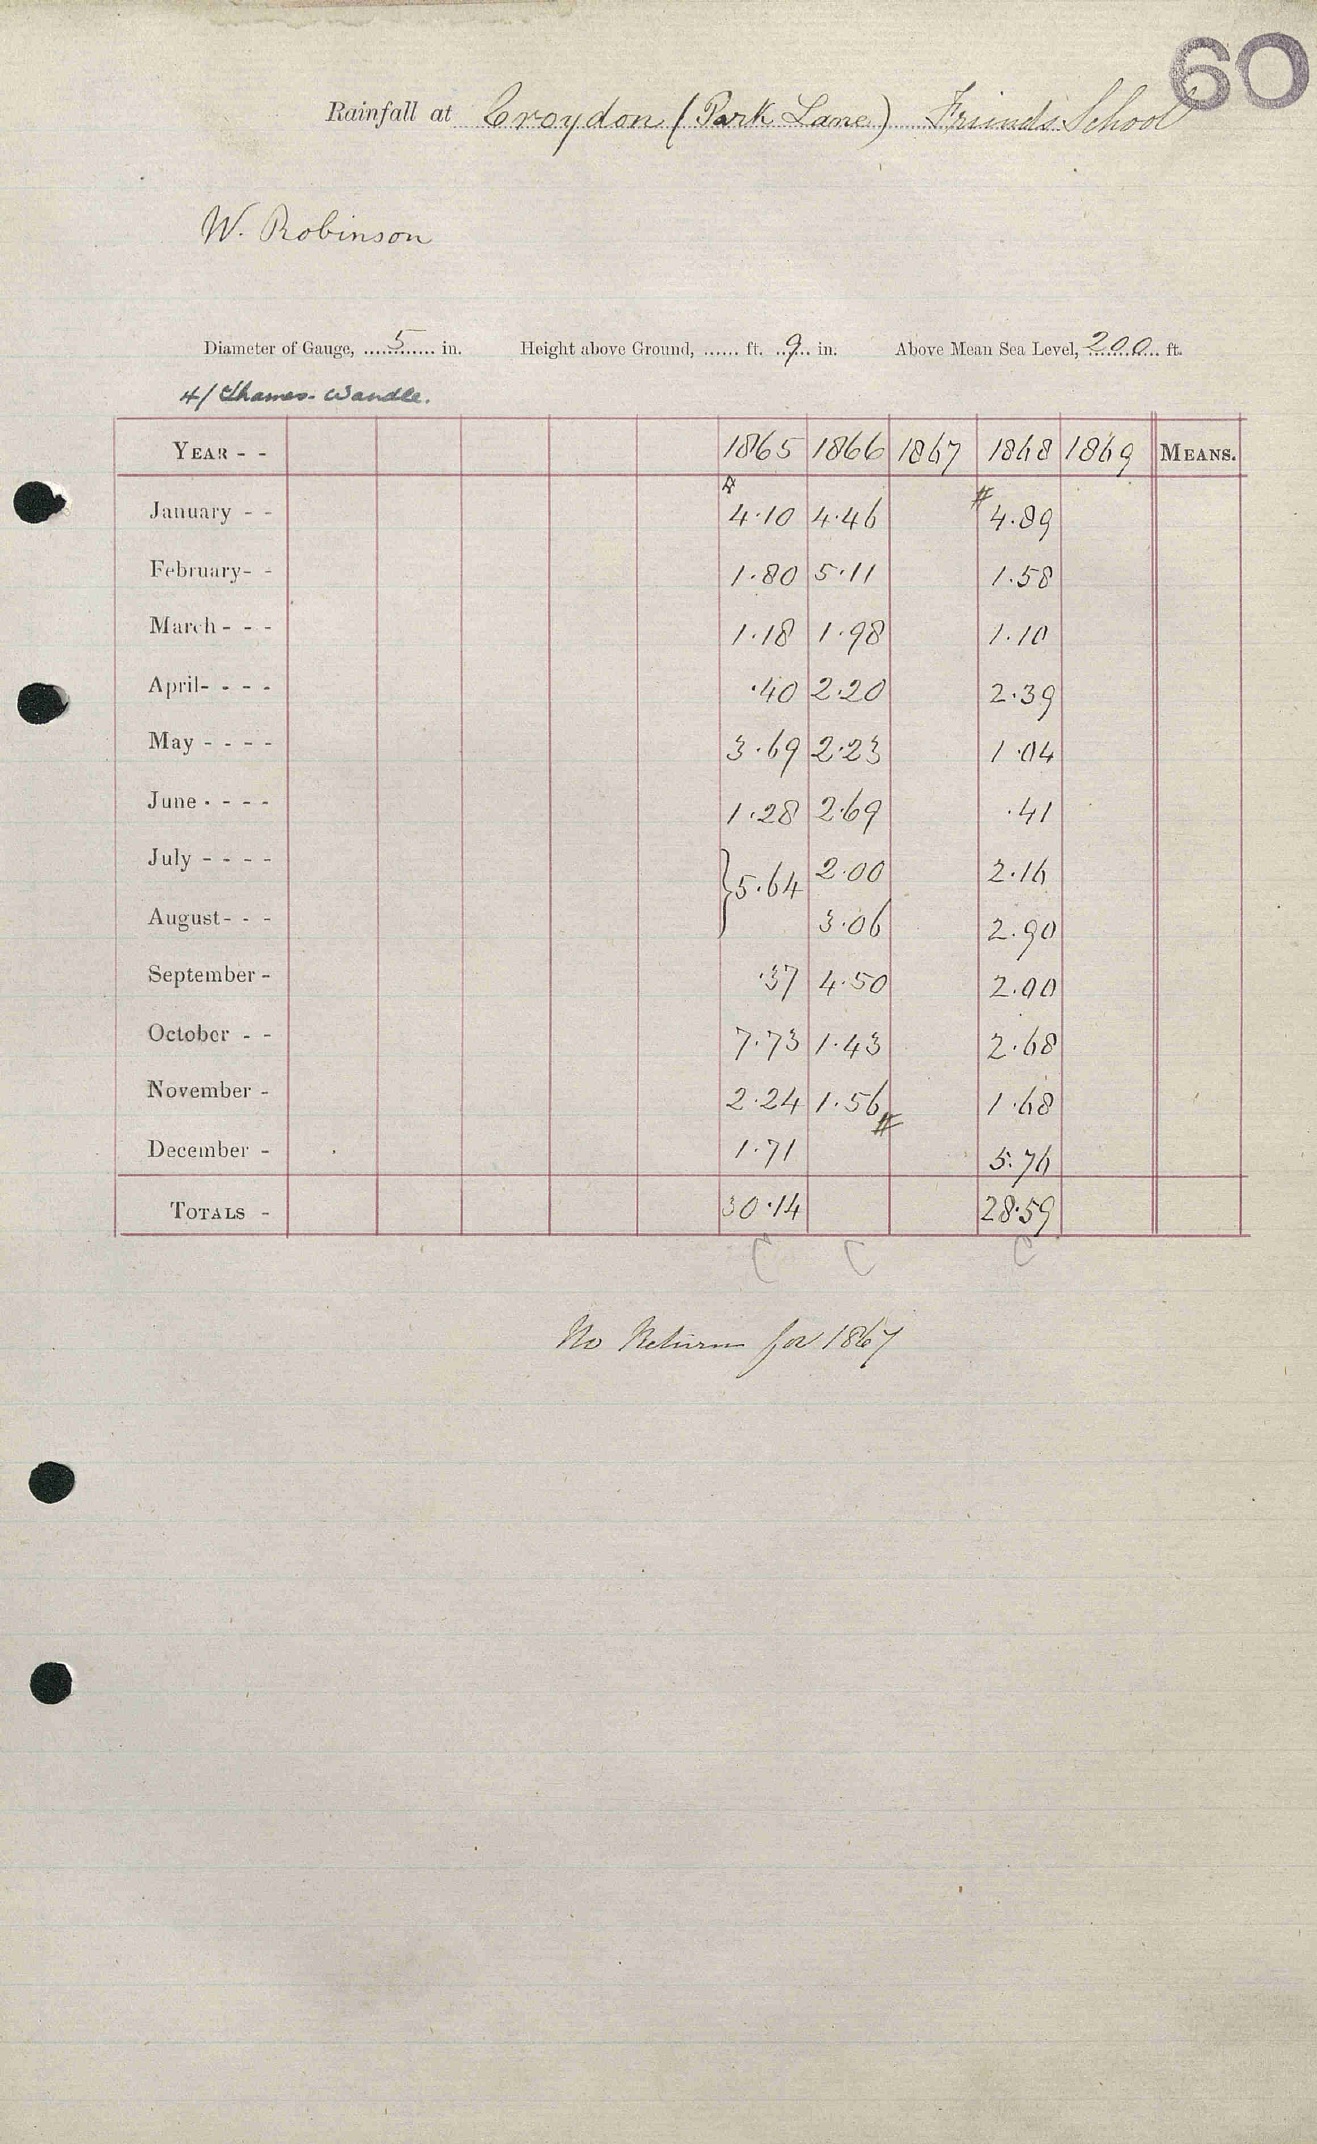 60
Rainfall at Croydon (Park Lane) Friends School
W. Robinson
Diameter of Gauge, ....5.... in. Height above Ground, ...... ft. ..9.. in. Above Mean Sea Level, 200 ft.
4/ Thames - Wandle.
YEAR - - 1865 1866 1867 1868 1869 MEANS.
January - - 4.10 4.46 # 4.89
February- - 1.80 5.11 1.58
March - - - 1.18 1.98 1.10
April- - - - .40 2.20 2.39
May - - - - 3.69 2.23 1.04
June - - - - 1.28 2.69 .41
July - - - - } 5.64 2.00 2.16
August- - - 3.06 2.90
September - .37 4.50 2.00
October - - 7.73 1.43 2.68
November - 2.24 1.56 #  1.68
December - 1.71 5.76
TOTALS - 30.14 28.59
C C C
No Return for 1867